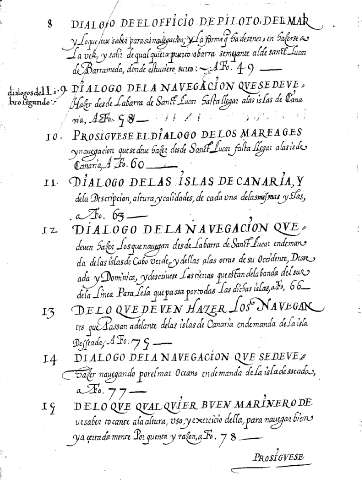 8 DIALOGO DEEL OFFICIO DE PILOTO DEL MAR
y Lo que deve saber para su navegacion, y La forma q ha de tener en hazerse a
La vela, y salir de qual quiera puerto o barra semejante al de sanct Lucar
de Barrameda, donde estuviere surto. A Fo. 49
dialogos del Li-
bro segundo.
9. DIALOGO DE LA NAVEGACION QUE SE DEVE
Hazer desde La barra de Sanct Lucar hasta llegar a las islas de Cana
ria, A Fo. 58
10. PROSIGUESE EL DIALOGO DE LOS MAREAGES
y navegacion que se deve hazer desde Sanct Lucar hasta llegar a las is de
Canaria, A Fo. 60
11. DIALOGO DE LAS ISLAS DE CANARIA, Y
de la Descripcion, altura, y calidades, de cada una de las mismas yslas,
a Fo. 63
12 DIALOGO DE LA NAVEGACION QUE
deven hazer Los que navegan desde La barra de Sanct Lucar en deman
da de las islas de Cabo verde, y dellas a las otras de su Occidente, Dese
ada y Dominica, y descrivese Las tierras que estan de la banda del sur
de la linea Paralela que pasa por todas las dichas islas, a Fo. 66
13 DE LO QUE DEVEN HAZER LOS NAVEGAN
tes que Passan adelante de las islas de Canaria en demanda de la isla
Desseada, A Fo. 75
14 DIALOGO DE LA NAVEGACION QUE SE DEVE
hazer navegando por el mar Oceano en demanda de la isla deseada,
a Fo. 77
15 DE LO QUE QUALQUIER BUEN MARINERO DE
ve saber tocante a la altura, uso, y exercicio della, para navegar bien
y acertadamente Por quenta y razon, a Fo. 78
PROSIGUESE